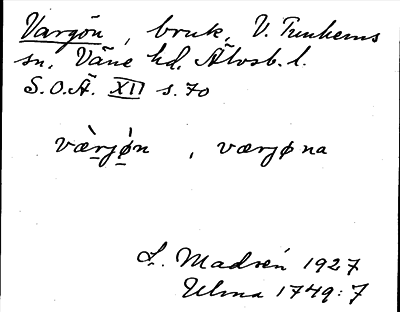 Vargön, bruk, V. Tunhems
sn, Väne hd. Älvsb. l.
S.O.Ä. XII s. 70
væ̀rjǿn, værjøna
L. Madsén 1927
Ulma 1749:7